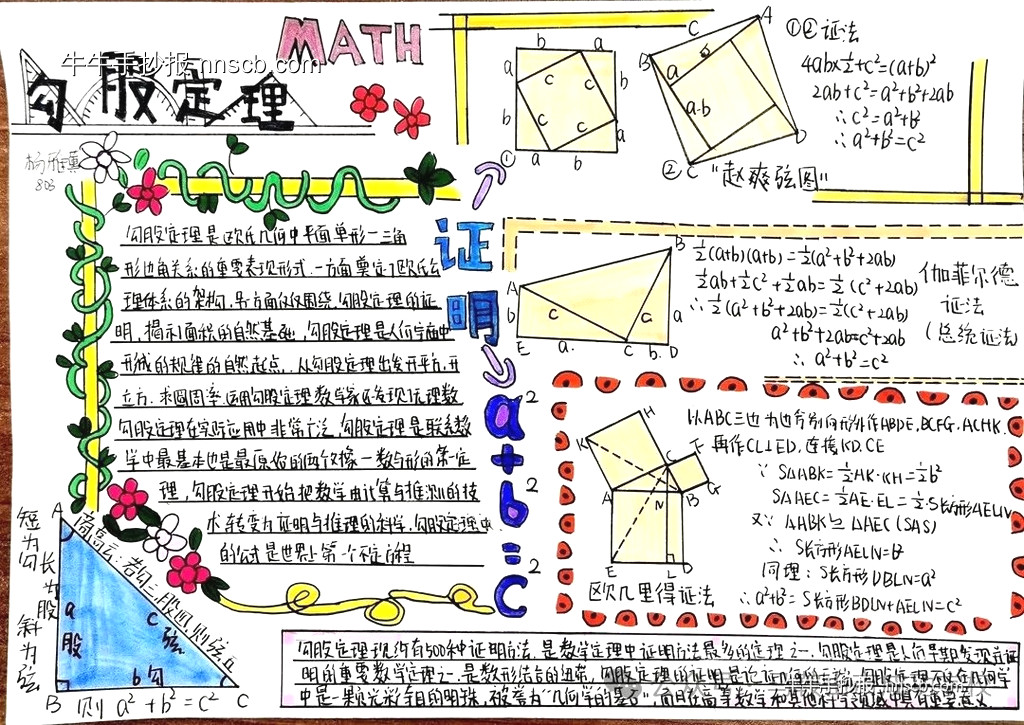 MATH
牛牛手抄报 nnscb.com
勾股定理
803
勾股定理是欧氏几何中平面单形一三角
形边角关系的重要表现形式.一方面奠定了欧氏公
理体系的架构,另方面
勾股定理的证
明,揭示面积的自然基础,勾股定理是人们
形成的规律的自然起点,.从勾股定理出发开平方,开
立方.求圆周率,运用勾股定理数学家还发现无理数
勾股定理在实际应用中非常广泛,勾股定理是联系数
学中最基本也是最原始的两个对象一数与形的第一定
理,勾股定理开始把数学由计算与推测的技
术,转变为证明与推理的科学.勾股定理中
的公式是世界上第一个不定方程
证明
a²+b²=c²
b a
a c b
c c
b c a
① a b
A
C
B
a
b
a-b
D
②C
"赵爽弦图"
①②证法
4ab×½+c²=(a+b)²
2ab+c²=a²+b²+2ab
∴c²=a²+b²
∴a²+b²=c²
B
A
b c c a
E a. C b. D
½(a+b)(a+b)=½(a²+b²+2ab)
½ab+½c²+½ab=½(c²+2ab)
∴½(a²+b²+2ab)=½(c²+2ab)
a²+b²+2ab=c²+2ab
∴a²+b²=c²
伽菲尔德
证法
(总统证法
H
K
C F
A N B G
E L D
欧几里得证法
以ABC三边为边分别向形外作ABDE.BCFG.ACHK.
再作CL⊥ED,连接KD.CE
∵S△ABK=½HK·KH=½b²
S△AEC=½AE·EL=½·S长方形AELN
又∵△ABK≌△AEC(SAS)
∴S长方形AELN=b²
同理:S长方形DBLN=a²
∴a²+b²=S长方形BDLN+AELN=c²
短为勾
长为股
斜为弦
A
高
勾三,股四,则弦五
a股
c弦
b勾
B 则a²+b²=c² C
勾股定理现约有500种证明方法,是数学定理中证明方法最多的定理之一.勾股定理是人们早期发现并证
明的重要数学定理之一.是数形结合的纽带,勾股定理的证明是论证几何的
中是一颗光彩夺目的明珠,被誉为"几何学的基石",而且在高等数学和其他科学领域中具有重要意义.